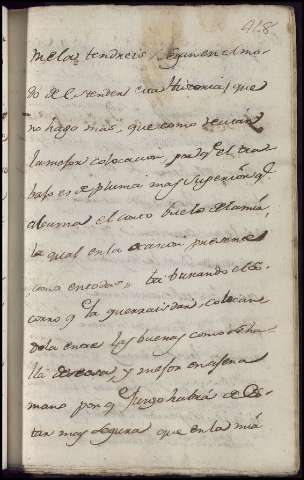 418
me la tendreis, segun en el mo-
do de estender esta Historia, que
no hago mas, que como
la mejor colocacion, porq.e el tra
bajo es de pluma mas superior q.e
el corto buelo de la mia,
la qual en la ocasion presente
como en todas,
corro q.e la querrais dar, colocan
dola entre las buenas como se ha-
lla y mejor en agena
mano por q.e juzgo habrá de es-
tar mas segura que en la mia